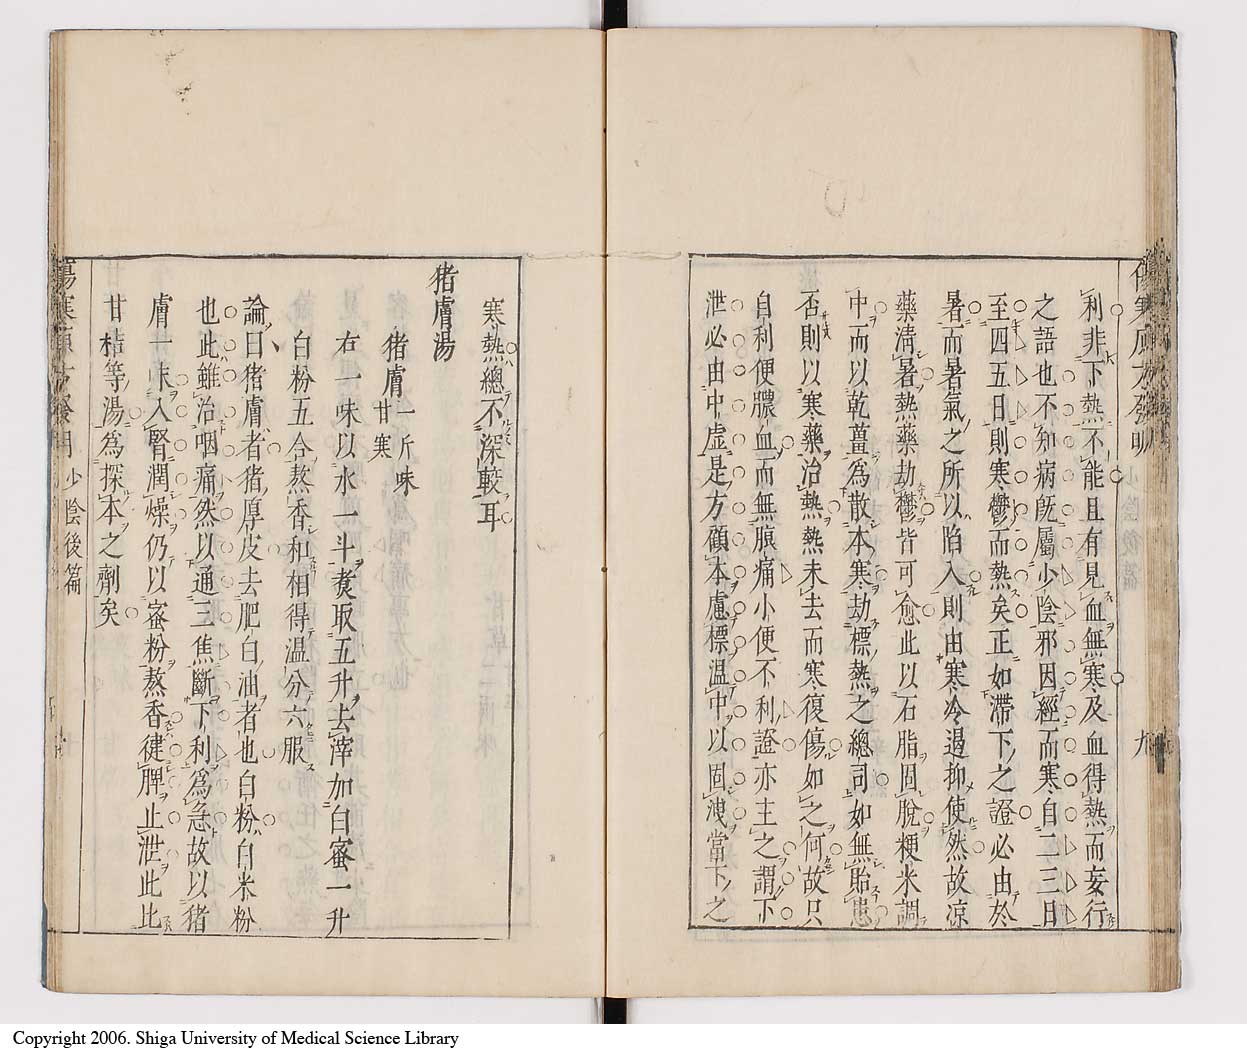 利非下熱不能且有見血無寒及血得熱而妄行
之語也不知病既屬少陰邪因經而寒自二三日
至四五日則寒鬱而熱矣正如滯下之證必由於
暑而暑氣之所以陷入則由寒冷遏抑使然故凉
藥淸暑熱藥劫鬱皆可愈此以石脂固脫粳米調
中而以乾薑爲散本寒劫標熱之總司如無貽患
否則以寒藥治熱熱未去而寒復傷如之何故只
自利便膿血而無腹痛小便不利證亦主之謂下
泄必由中虚是方顧本慮標溫中以固洩當下之
寒熱總不深較耳
猪膚湯
猪膚一斤味甘寒
右一味以水一斗煑取五升去滓加白蜜一升
白粉五合熬香和相得温分六服
論曰猪膚者猪厚皮去肥白油者也白粉白米粉
也此雖治咽痛然以通三焦斷下利爲急故以猪
膚一味入腎潤燥仍以蜜粉熬香健脾止泄此比
甘桔等湯爲探本之劑矣
少陰後篇
Copyright 2006. Shiga University of Medical Science Library